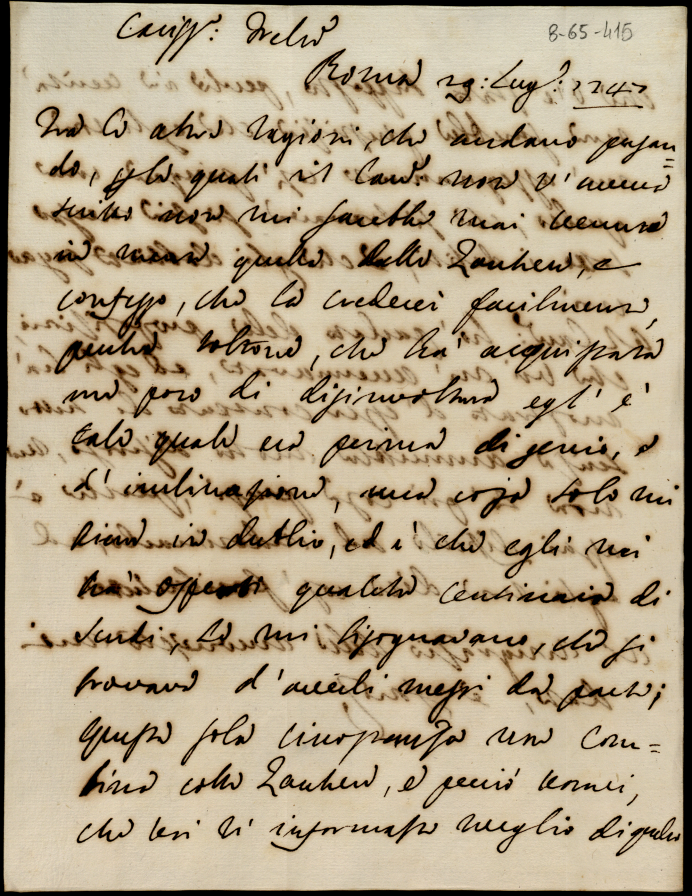 8-65-415
Cariss.:
Roma 29: Lug.
Tra le altre ragioni, che andavo pensan=
do, p le quali il non v'avesse
scritto non mi sarebbe mai venuta
in mente quella delle Zanhere, e
confesso, che la crederei facilmente,
perche toltone, che hà acquistata
un poco di disinvoltura egl'è
tale quale era prima di genio, e
d'inclinazione, una cosa solo mi
tiene in dubbio, ed è che egli mi
hà offerto qualche centinaio di
scudi, se mi bisognavano, che si
trovava d'averli messi da parte;
questa sola circostanza non com=
bina colle Zanhere, e perciò vorrei,
che lei si informasse meglio di quello